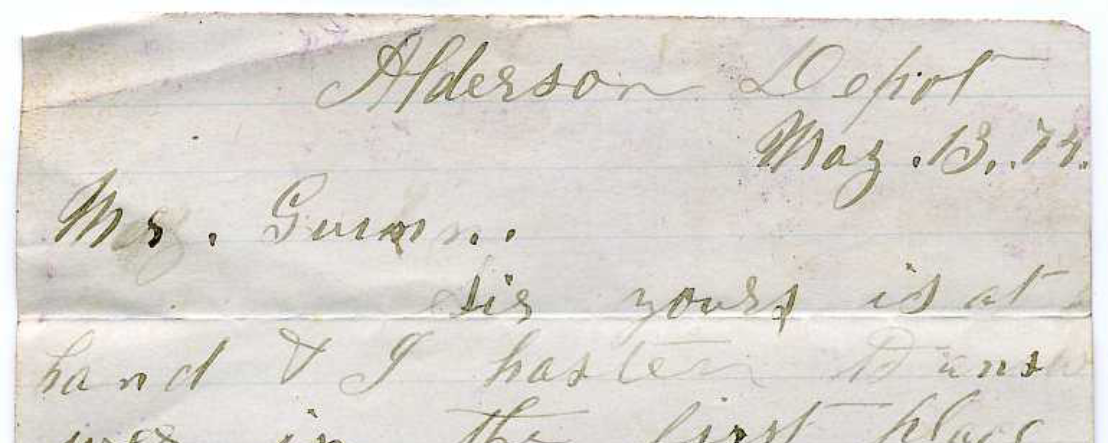 Alderson Depot
May. 13,. 74.
Mr. Guinn..
Sir yours is at
hand & I hasten to answ
wer in the first place